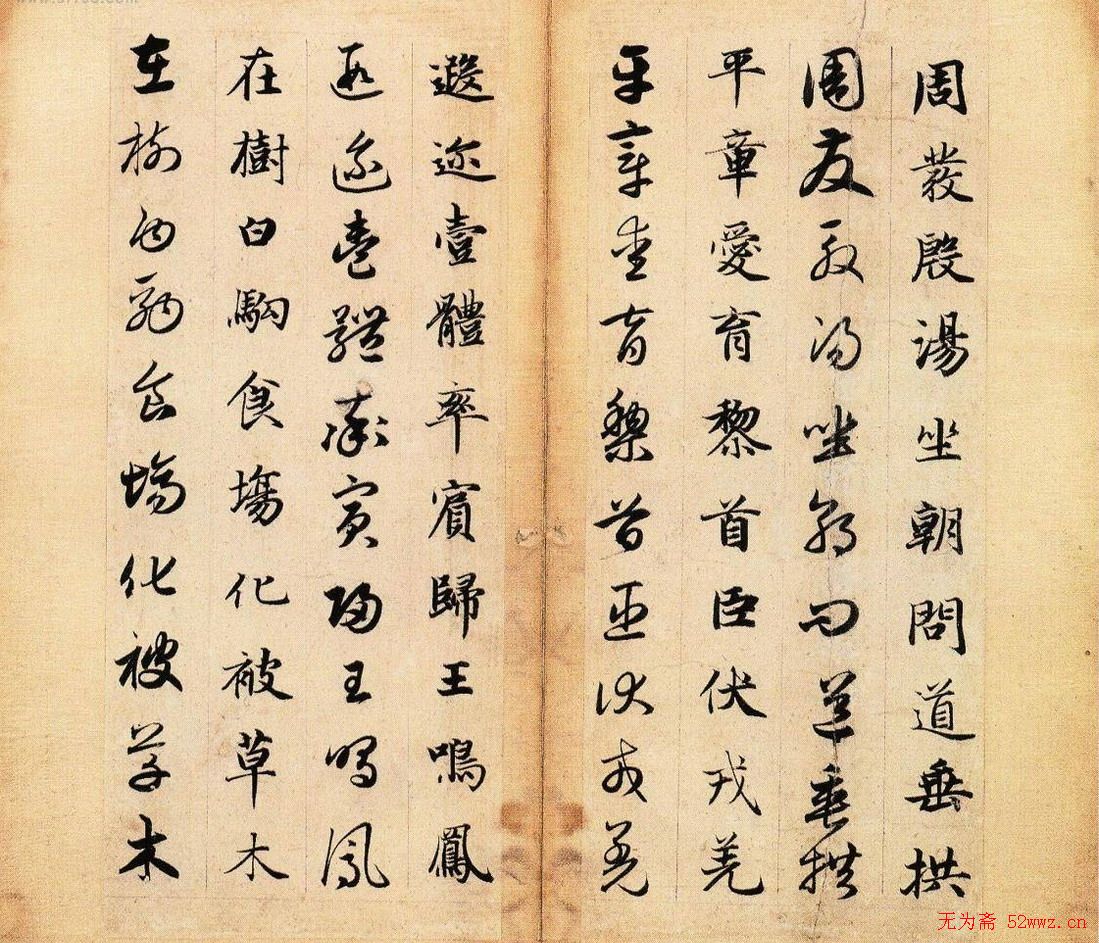 周發殷湯坐朝問道垂拱
周發殷湯坐朝問道垂拱
平章愛育黎首臣伏戎羌
平章愛育黎首臣伏戎羌
遐迩壹體率賓歸王鳴鳳
遐迩壹體率賓歸王鳴鳳
在樹白駒食塲化被草木
在樹白駒食塲化被草木
无为斋 52wwz.cn